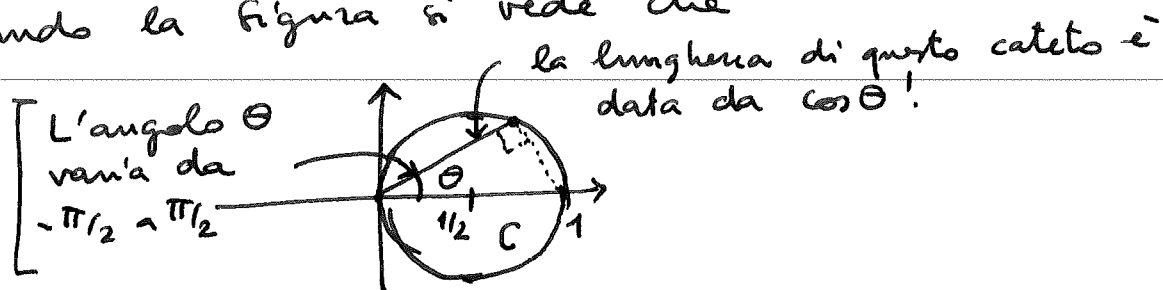 la figura si vede che
la lunghezza di questo cateto è
data da cos θ!
L'angolo θ
varia da
-π/2 a π/2
θ
1/2
C
1